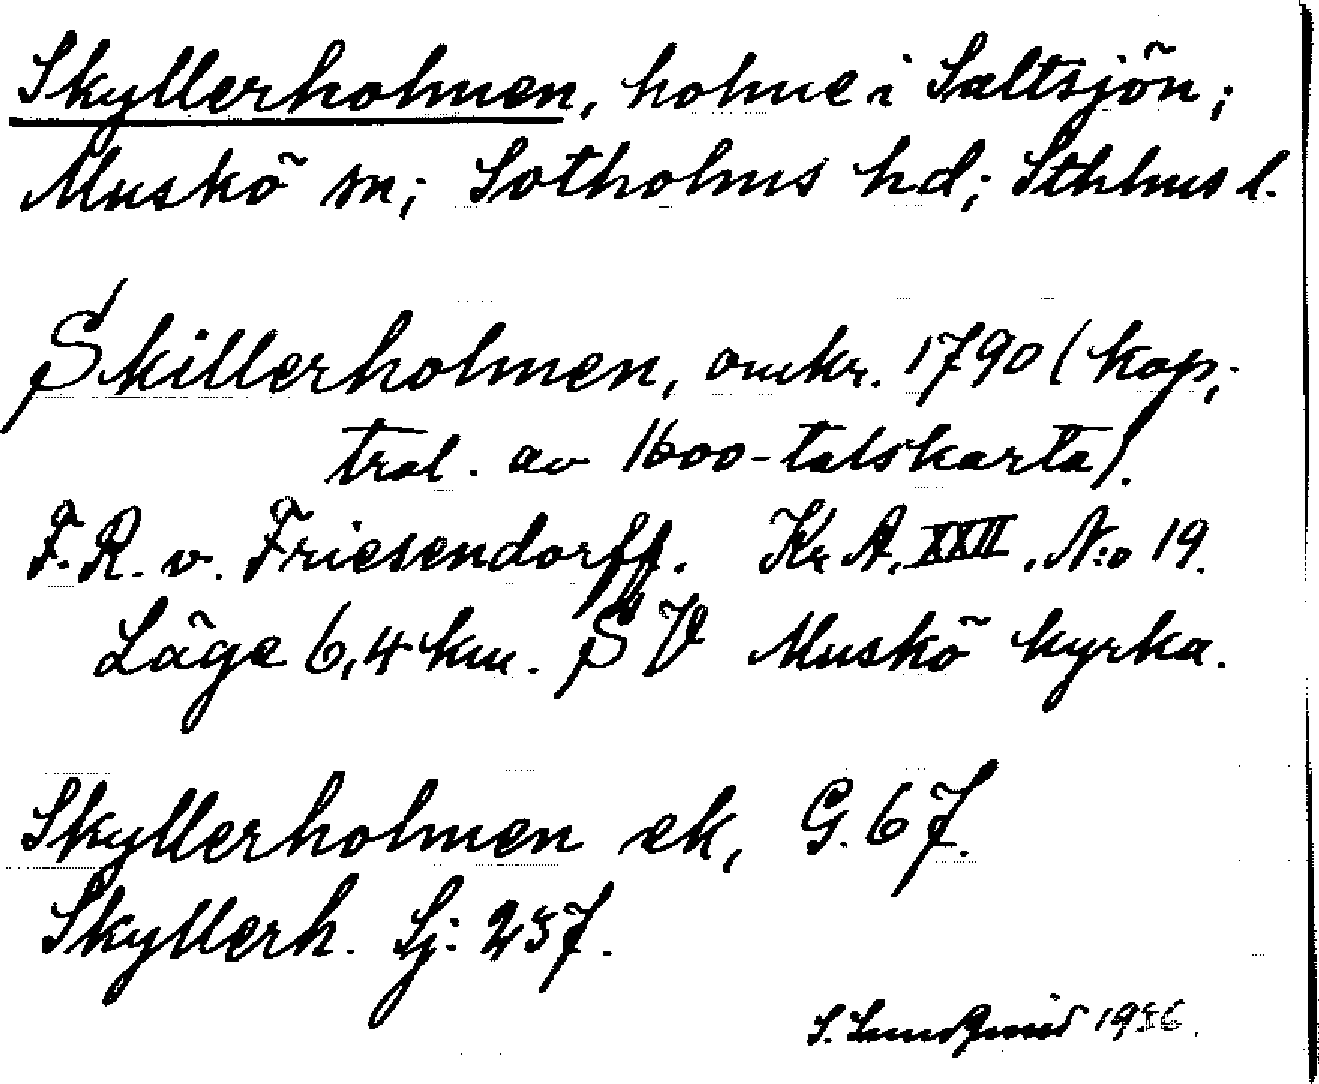 Skyllerholmen, holme i Saltsjön;
Muskö sn; Sotholms hd; Sthlms l.
Skillerholmen, omkr. 1790 (kop;
tral. av 1600-talskarta).
F. R. v. Friesendorff. Kr A. XXII. N:o 19.
Läge 6,4 km. SV Muskö kyrka.
Skyllerholmen ek, G. 67.
Skyllerh. Sj: 237.
S. 1936.